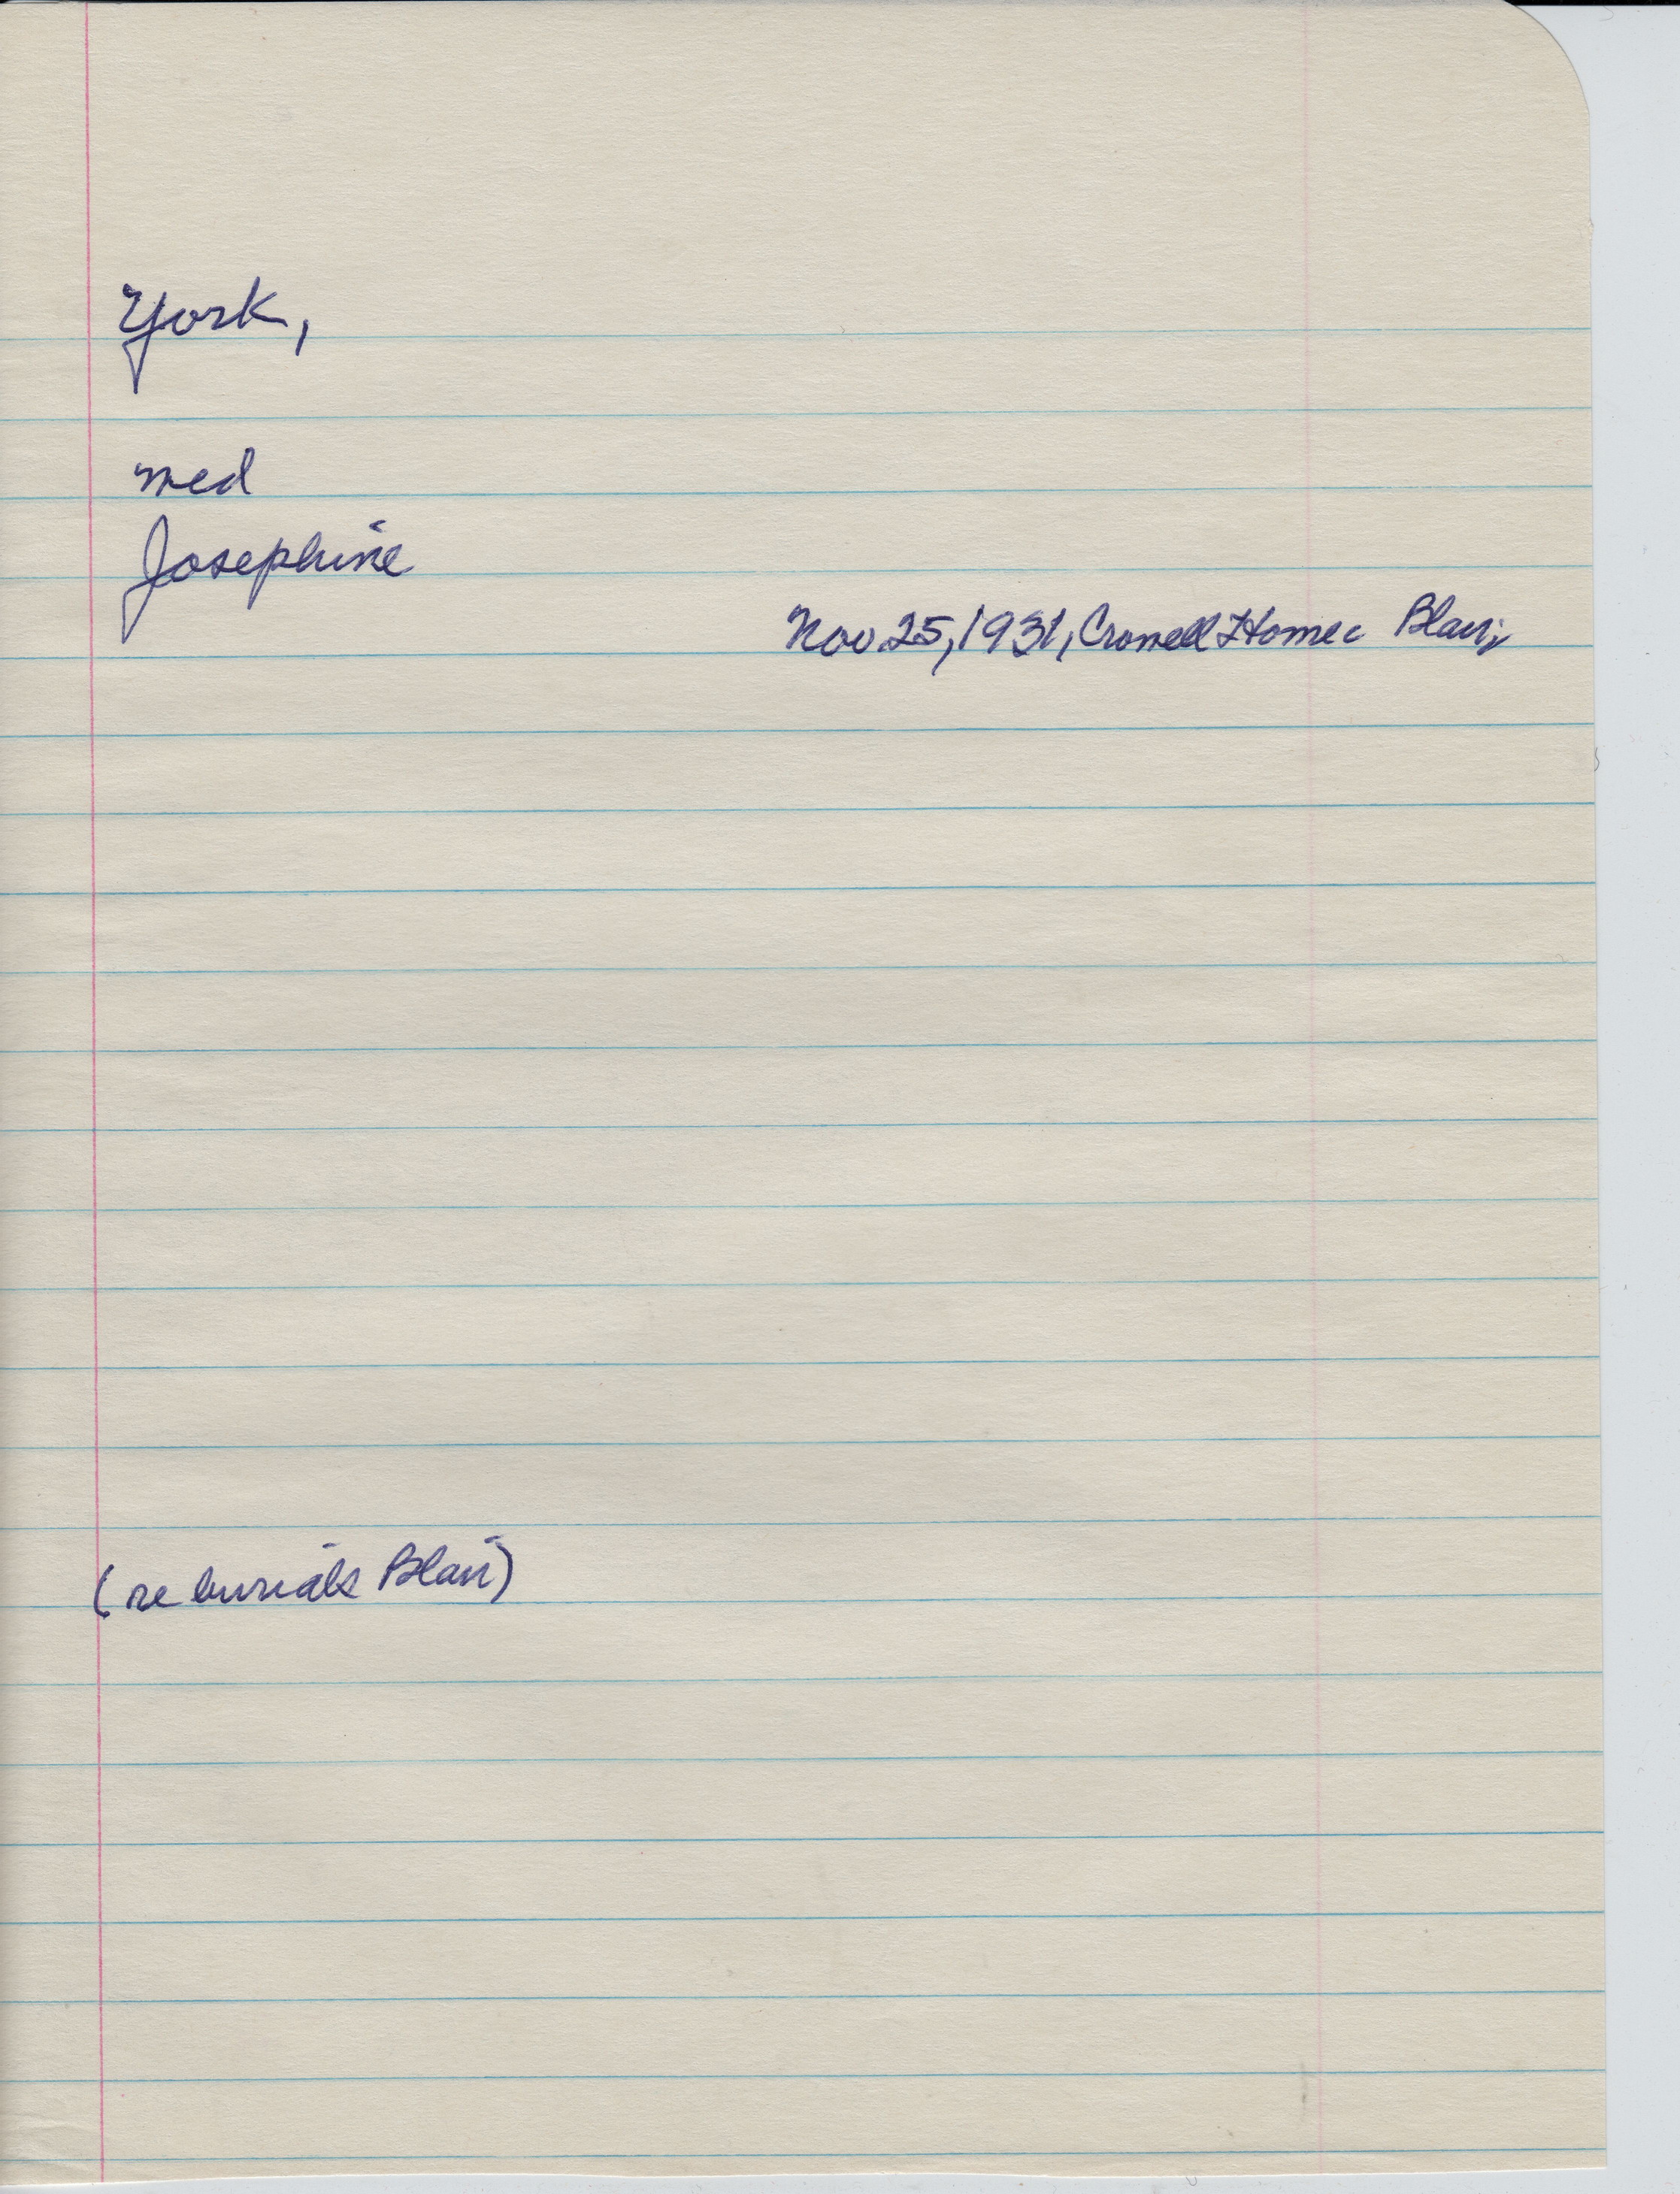 York,
med
Josephine
Nov 25, 1931, Crowell Home Blair,
(re burials Blair)